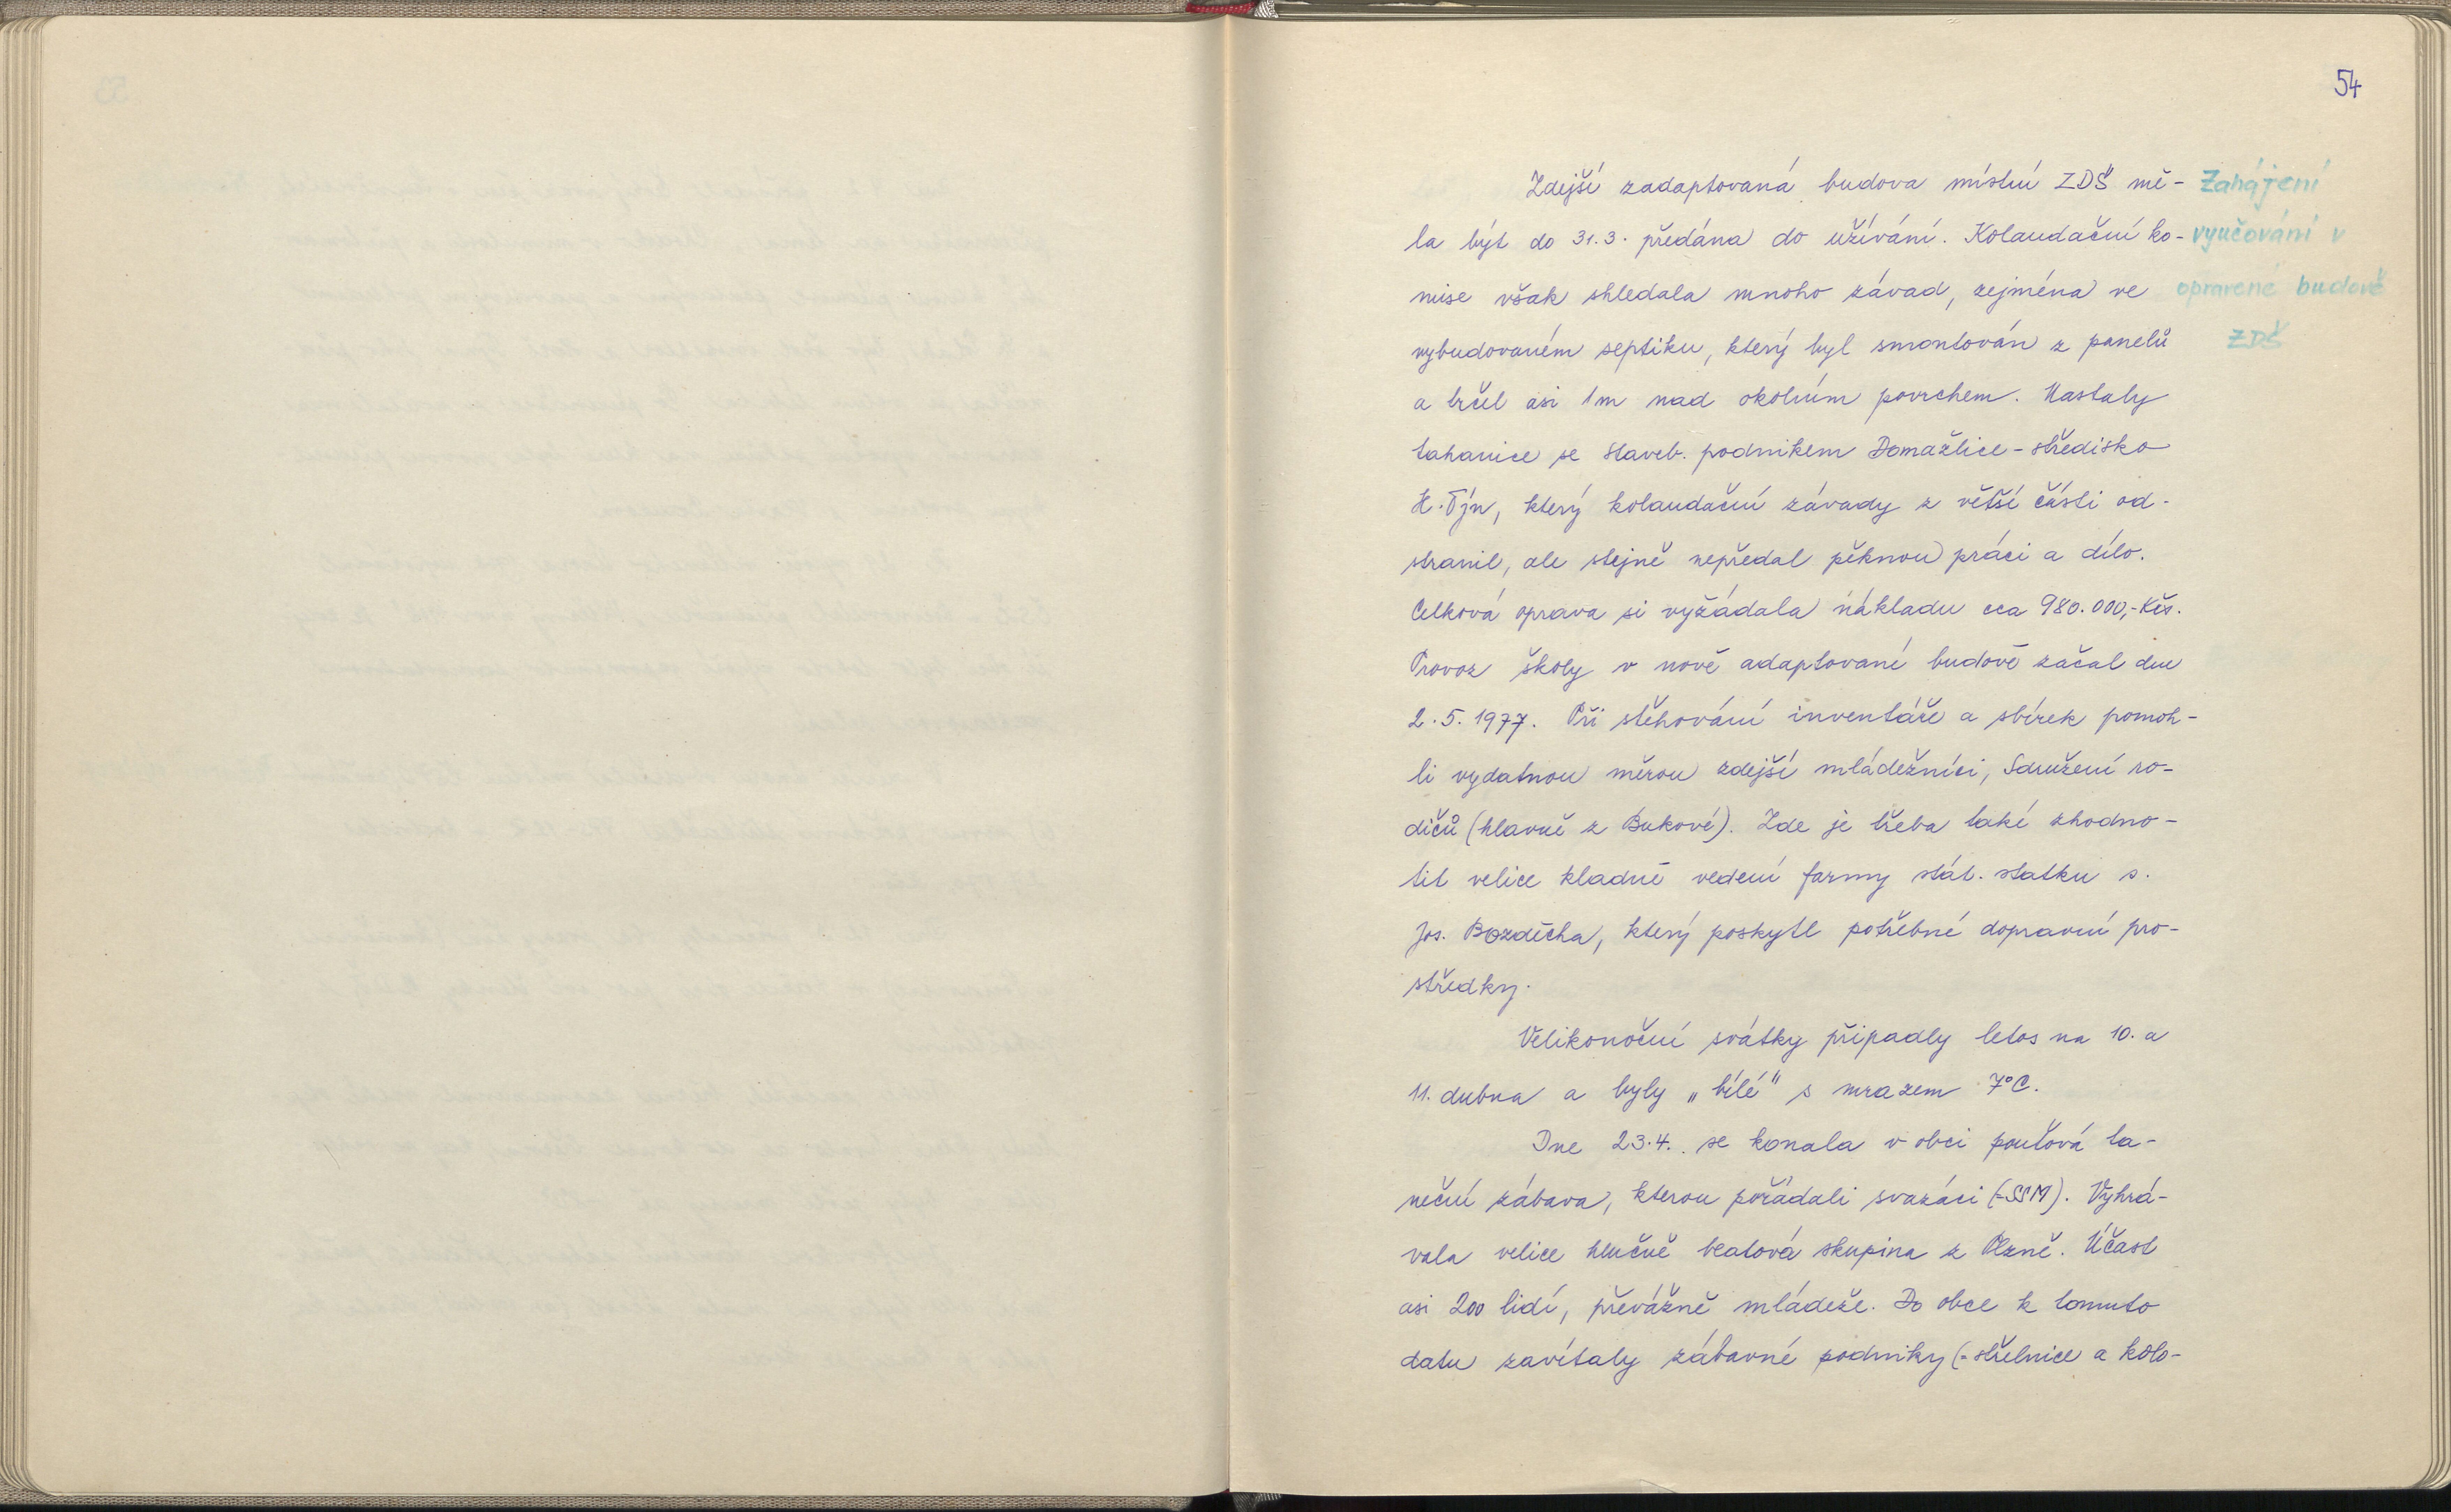 54
Zdejší zadaptovaná budova místní ZDŠ mě-
la být do 31.3. předána do užívání. Kolaudační ko-
mise však shledala mnoho závad, zejména ve
vybudovaném septiku, který byl smontován z panelů
a trčel asi 1m nad okolním povrchem. Nastaly
tahanice se staveb. podnikem Domažlice - středisko
H. Týn, který kolaudační závady z větší části od-
stranil, ale stejně nepředal pěknou práci a dílo.
Celková oprava si vyžádala nákladu cca 980.000,- Kčs.
Provoz školy v nově adaptované budově začal dne
2.5.1977. Při stěhování inventáře a sbírek pomoh-
li vydatnou měrou zdejší mládežníci, Sdružení ro-
dičů (hlavně z Bukové). Zde je třeba také zhodno-
tit velice kladně vedení farmy stát. statku s.
Jos. Bozděcha, který poskytl potřebné dopravní pro-
středky.
Velikonoční svátky připadly letos na 10. a
11. dubna a byly „bílé" s mrazem 7°C.
Dne 23.4. se konala v obci pouťová ta-
neční zábava, kterou pořádali svazáci (-SSM). Vyhrá-
vala velice hlučně beatová skupina z Plzně. Účast
asi 200 lidí, převážně mládeže. Do obce k tomuto
datu zavítaly zábavné podniky (-střelnice a kolo-
Zahájení
vyučování v
opravené budově
ZDŠ